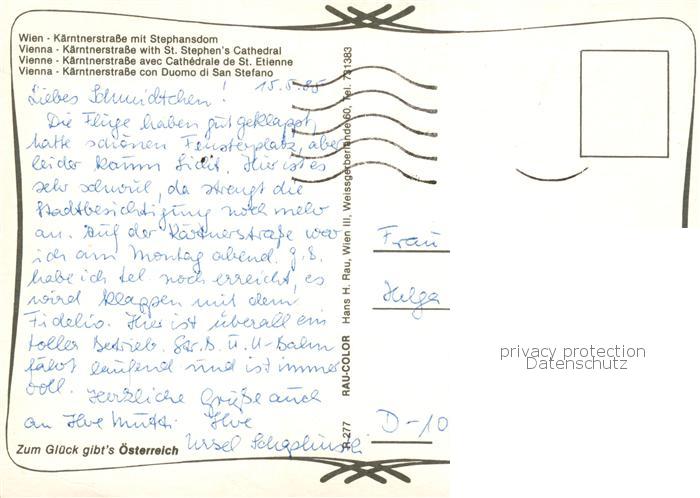 Wien - Kärntnerstraße mit Stephansdom
Vienna - Kärntnerstraße with St. Stephen's Cathedral
Vienne - Kärntnerstraße avec Cathédrale de St. Etienne
Vienna - Kärntnerstraße con Duomo di San Stefano
15.5.85
Liebes Schmidtchen!
Die Flüge haben gut geklappt,
hatte schönen Fensterplatz, aber
leider kaum Sicht. Hier ist es
sehr schwül, da strengt die
Stadtbesichtigung noch mehr
an. Auf der Kärtnerstraße war
ich am Montag abend. J.S.
habe ich tel noch erreicht, es
wird klappen mit dem
Fidelio. Hier ist überall ein
toller Betrieb. Str.B. u. U-Bahn
fährt laufend und ist immer
voll. Herzliche Grüße auch
an Ihre Mutti. Ihre
Ursel
Zum Glück gibt's Österreich
R-277 RAU-COLOR Hans H. Rau, Wien III, Weissgerberlände 60, Tel. 731383
Frau
Helga
D-10
privacy protection
Datenschutz